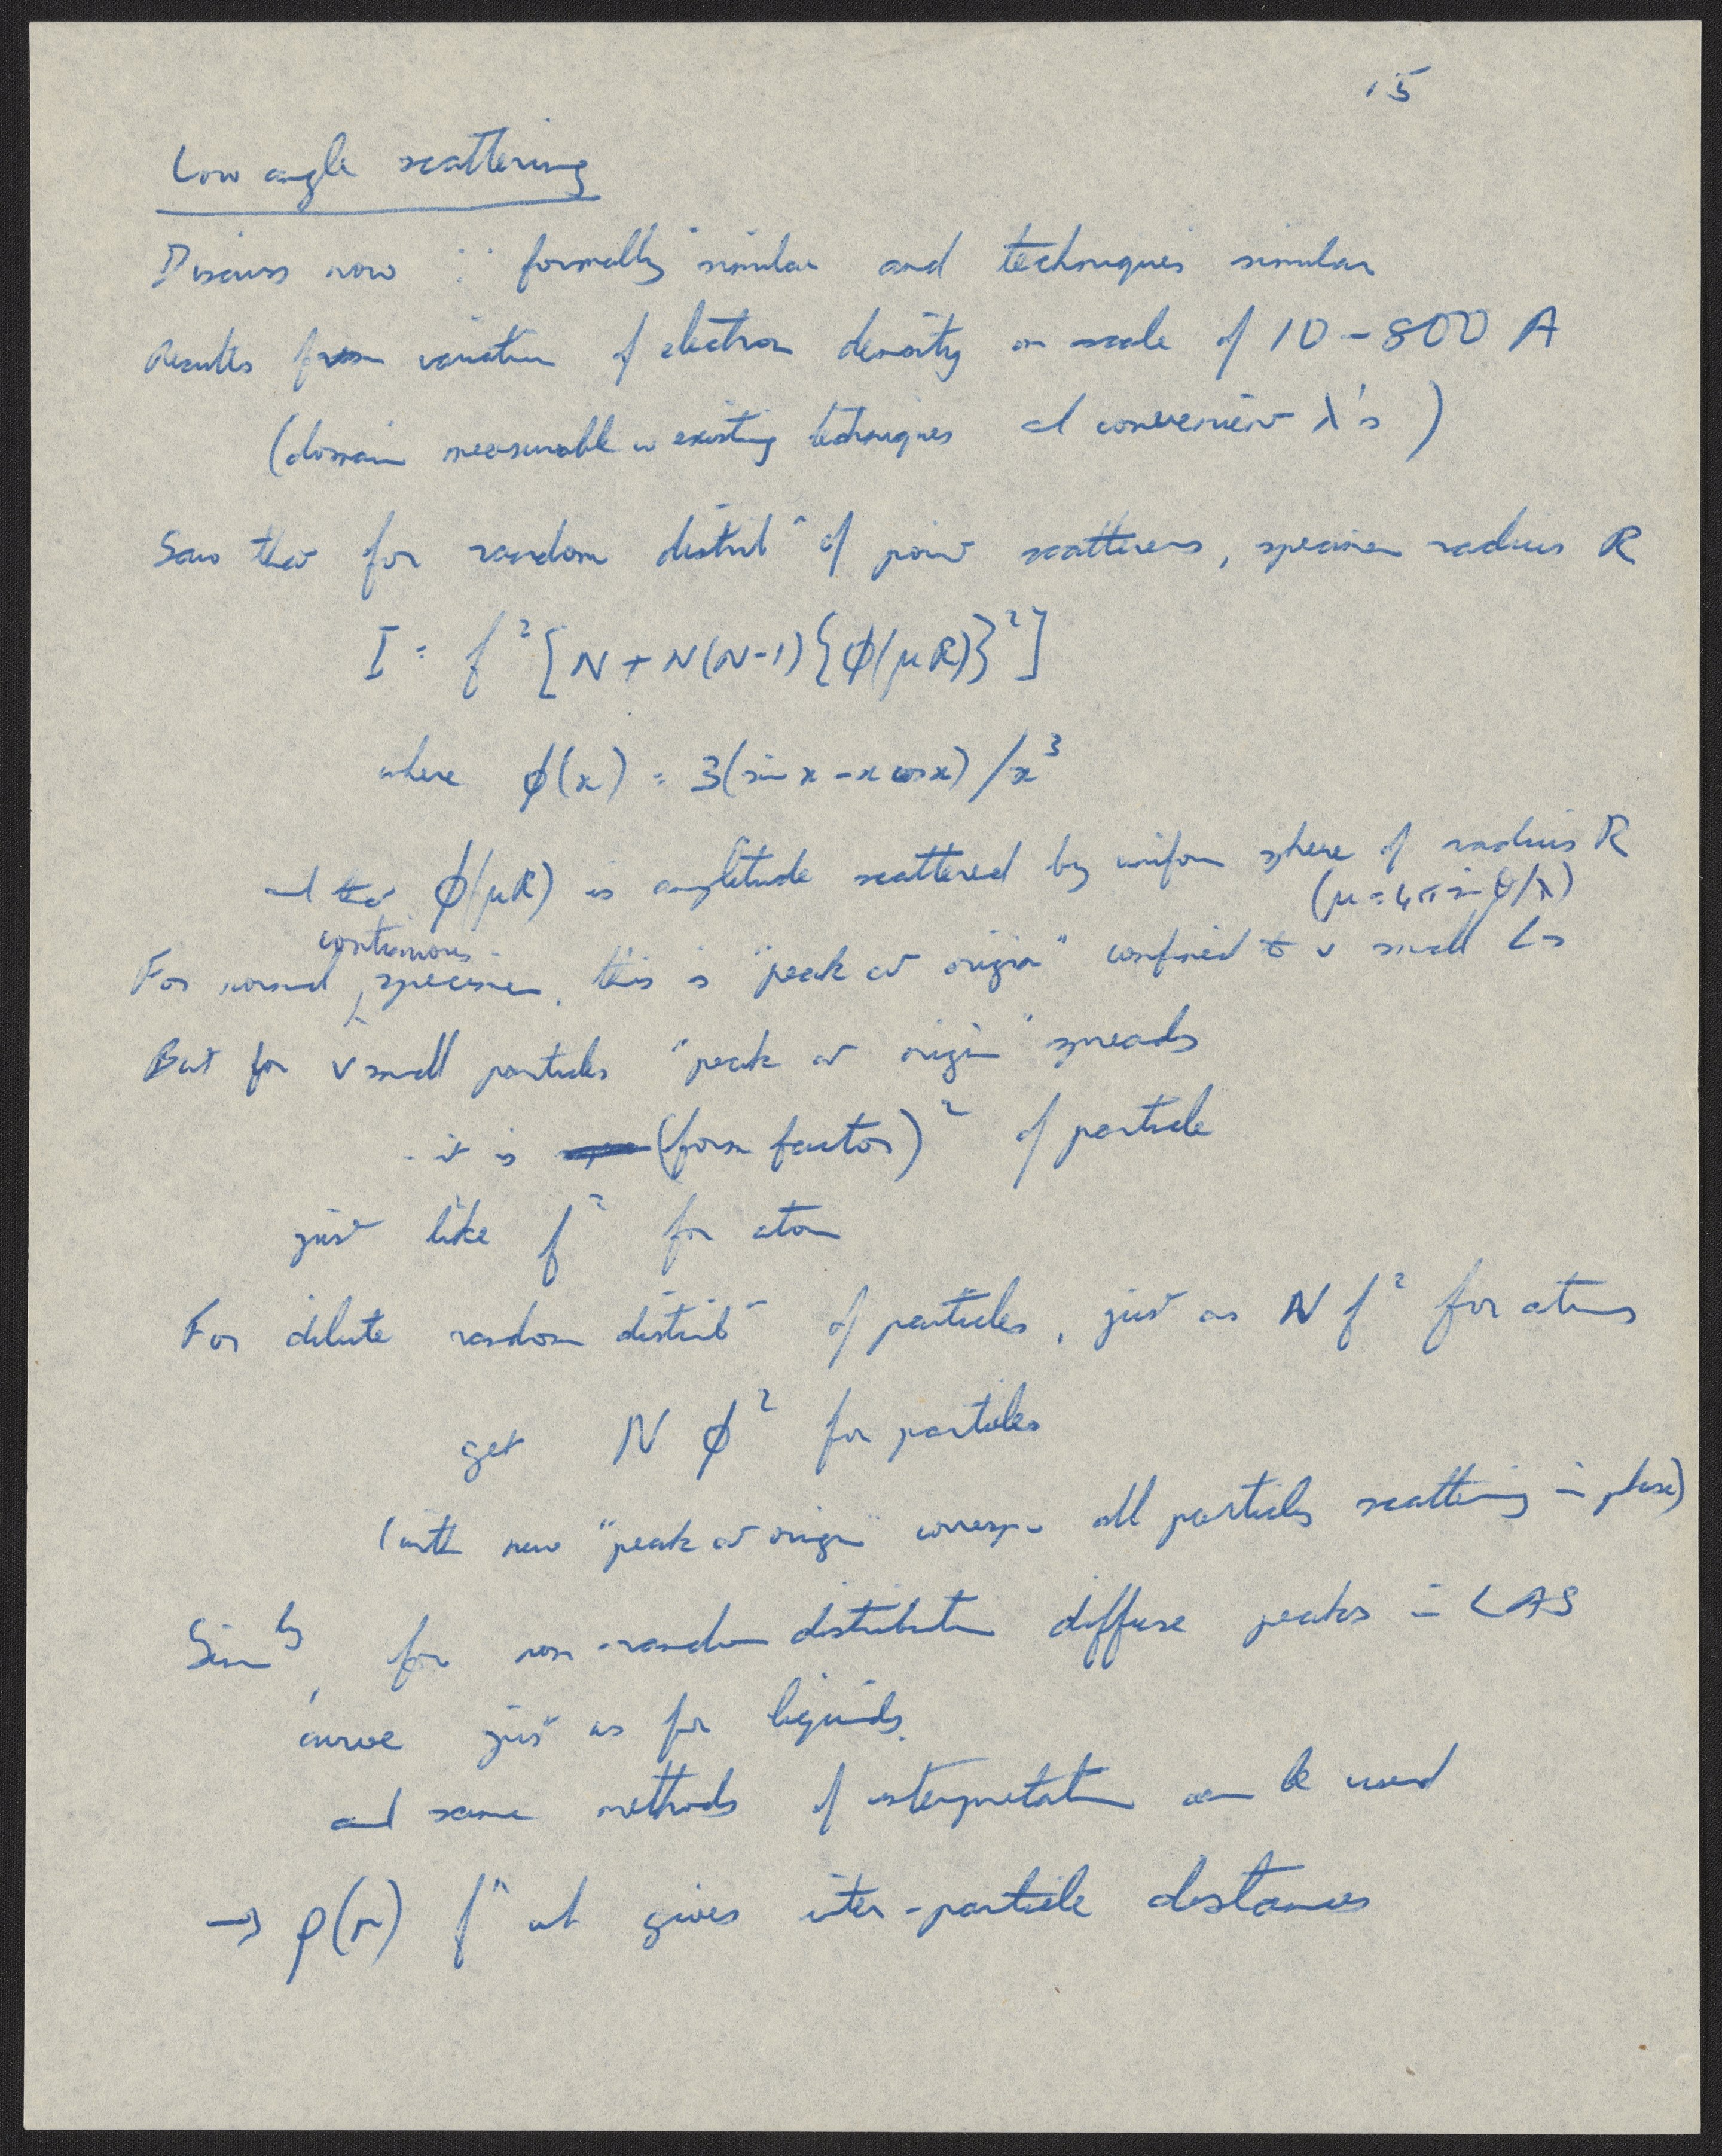 15
Low angle scattering
Discuss now ∵ formally similar and techniques similar
Results from variation of electron density on scale of 10 – 800 A
(domain measurable w existing techniques at convenient λ's)
Saw that for random distribⁿ of point scatterers, specimen radius R
I = f² [N + N(N-1) {ϕ(μR)}²]
where ϕ(x) = 3(sin x - x cos x) / x³
and that ϕ(μR) is amplitude scattered by uniform sphere of radius R
(μ = 4π sin θ/λ)
continuous
For normal specimen, this is "peak at origin" confined to v small ∠s
But for v small particles "peak at origin" spreads
- it is (form factor)² of particle
just like f² for atom
For dilute random distribⁿ of particles, just as N f² for atoms
get N ϕ² for particles
(with new "peak at origin" corresp. all particles scattering in phase)
Simˡʸ, for non-random distribution diffuse peaks in LAS
curve just as for liquids.
and same methods of interpretation can be used
→ ρ(r) fⁿ wh gives inter-particle distances